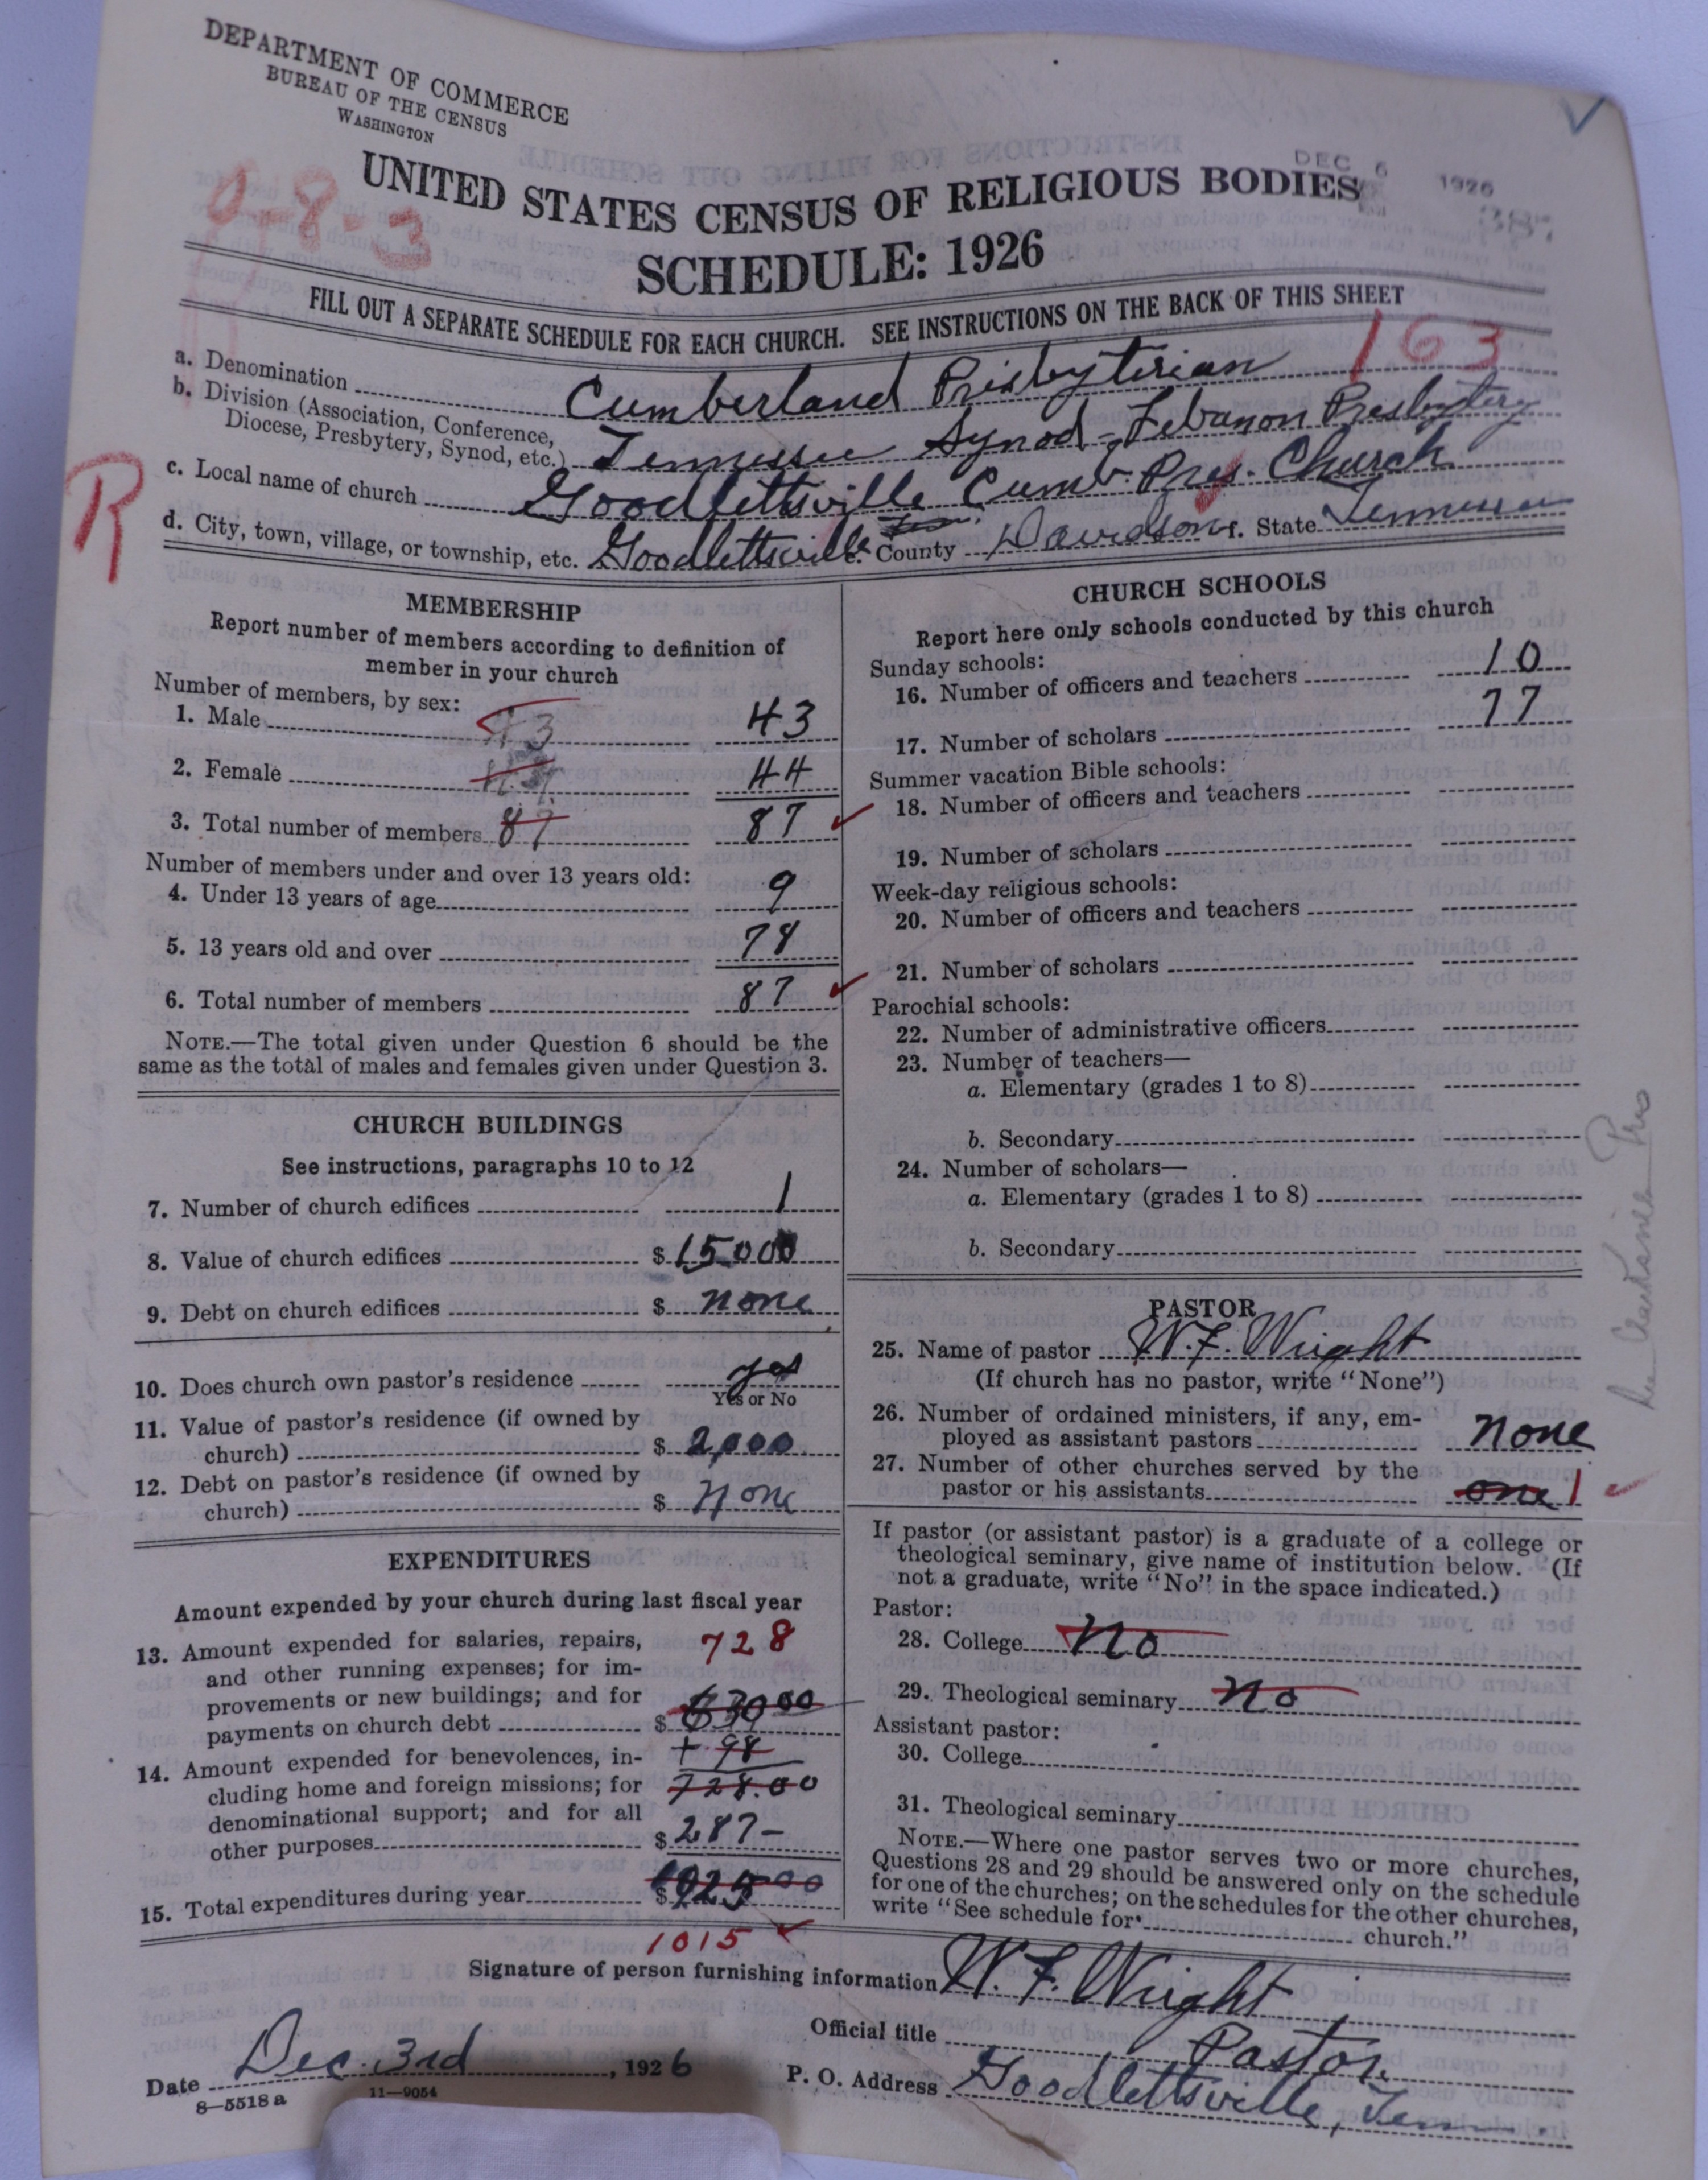 DEPARTMENT OF COMMERCE
BUREAU OF THE CENSUS
WASHINGTON
UNITED STATES CENSUS OF RELIGIOUS BODIES
SCHEDULE: 1926
DEC 6 1926
FILL OUT A SEPARATE SCHEDULE FOR EACH CHURCH. SEE INSTRUCTIONS ON THE BACK OF THIS SHEET
163
R
a. Denomination Cumberland Presbyterian
b. Division (Association, Conference,
Diocese, Presbytery, Synod, etc.) Tennessee Synod - Lebanon Presbytery
c. Local name of church Goodlettsville Cumb. Pres. Church
d. City, town, village, or township, etc. Goodlettsville e. County Davidson f. State Tennessee
MEMBERSHIP
Report number of members according to definition of
member in your church
Number of members, by sex:
1. Male 43 43
2. Female 44
3. Total number of members 87 87
Number of members under and over 13 years old:
4. Under 13 years of age 9
5. 13 years old and over 78
6. Total number of members 87
NOTE.—The total given under Question 6 should be the
same as the total of males and females given under Question 3.
CHURCH BUILDINGS
See instructions, paragraphs 10 to 12
7. Number of church edifices 1
8. Value of church edifices $ 15000
9. Debt on church edifices $ none
10. Does church own pastor's residence yes
Yes or No
11. Value of pastor's residence (if owned by
church) $ 2,000
12. Debt on pastor's residence (if owned by
church) $ None
EXPENDITURES
Amount expended by your church during last fiscal year
13. Amount expended for salaries, repairs, 728
and other running expenses; for im-
provements or new buildings; and for
payments on church debt $ 630 00
+ 98
14. Amount expended for benevolences, in-
cluding home and foreign missions; for 728.00
denominational support; and for all
other purposes $ 287-
15. Total expenditures during year $
1015
CHURCH SCHOOLS
Report here only schools conducted by this church
Sunday schools:
16. Number of officers and teachers 10
17. Number of scholars 77
Summer vacation Bible schools:
18. Number of officers and teachers
19. Number of scholars
Week-day religious schools:
20. Number of officers and teachers
21. Number of scholars
Parochial schools:
22. Number of administrative officers
23. Number of teachers—
a. Elementary (grades 1 to 8)
b. Secondary
24. Number of scholars—
a. Elementary (grades 1 to 8)
b. Secondary
PASTOR
25. Name of pastor W. F. Wright
(If church has no pastor, write "None")
26. Number of ordained ministers, if any, em-
ployed as assistant pastors none
27. Number of other churches served by the
pastor or his assistants one 1
If pastor (or assistant pastor) is a graduate of a college or
theological seminary, give name of institution below. (If
not a graduate, write "No" in the space indicated.)
Pastor:
28. College No
29. Theological seminary No
Assistant pastor:
30. College
31. Theological seminary
NOTE.—Where one pastor serves two or more churches,
Questions 28 and 29 should be answered only on the schedule
for one of the churches; on the schedules for the other churches,
write "See schedule for church."
Signature of person furnishing information W. F. Wright
Official title Pastor
Date Dec. 3rd, 1926
P. O. Address Goodlettsville, Tenn.
8—5518 a 11—9054